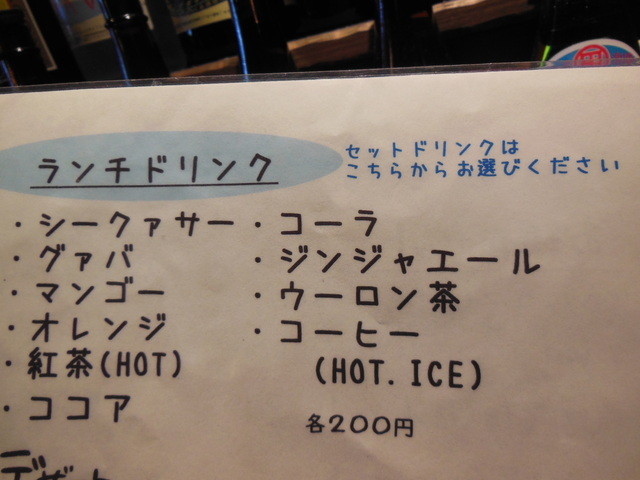 ランチドリンク
セットドリンクは
こちらからお選びください
・シークァサー
・グァバ
・マンゴー
・オレンジ
・紅茶(HOT)
・ココア
・コーラ
・ジンジャエール
・ウーロン茶
・コーヒー
(HOT.ICE)
各200円
デザート